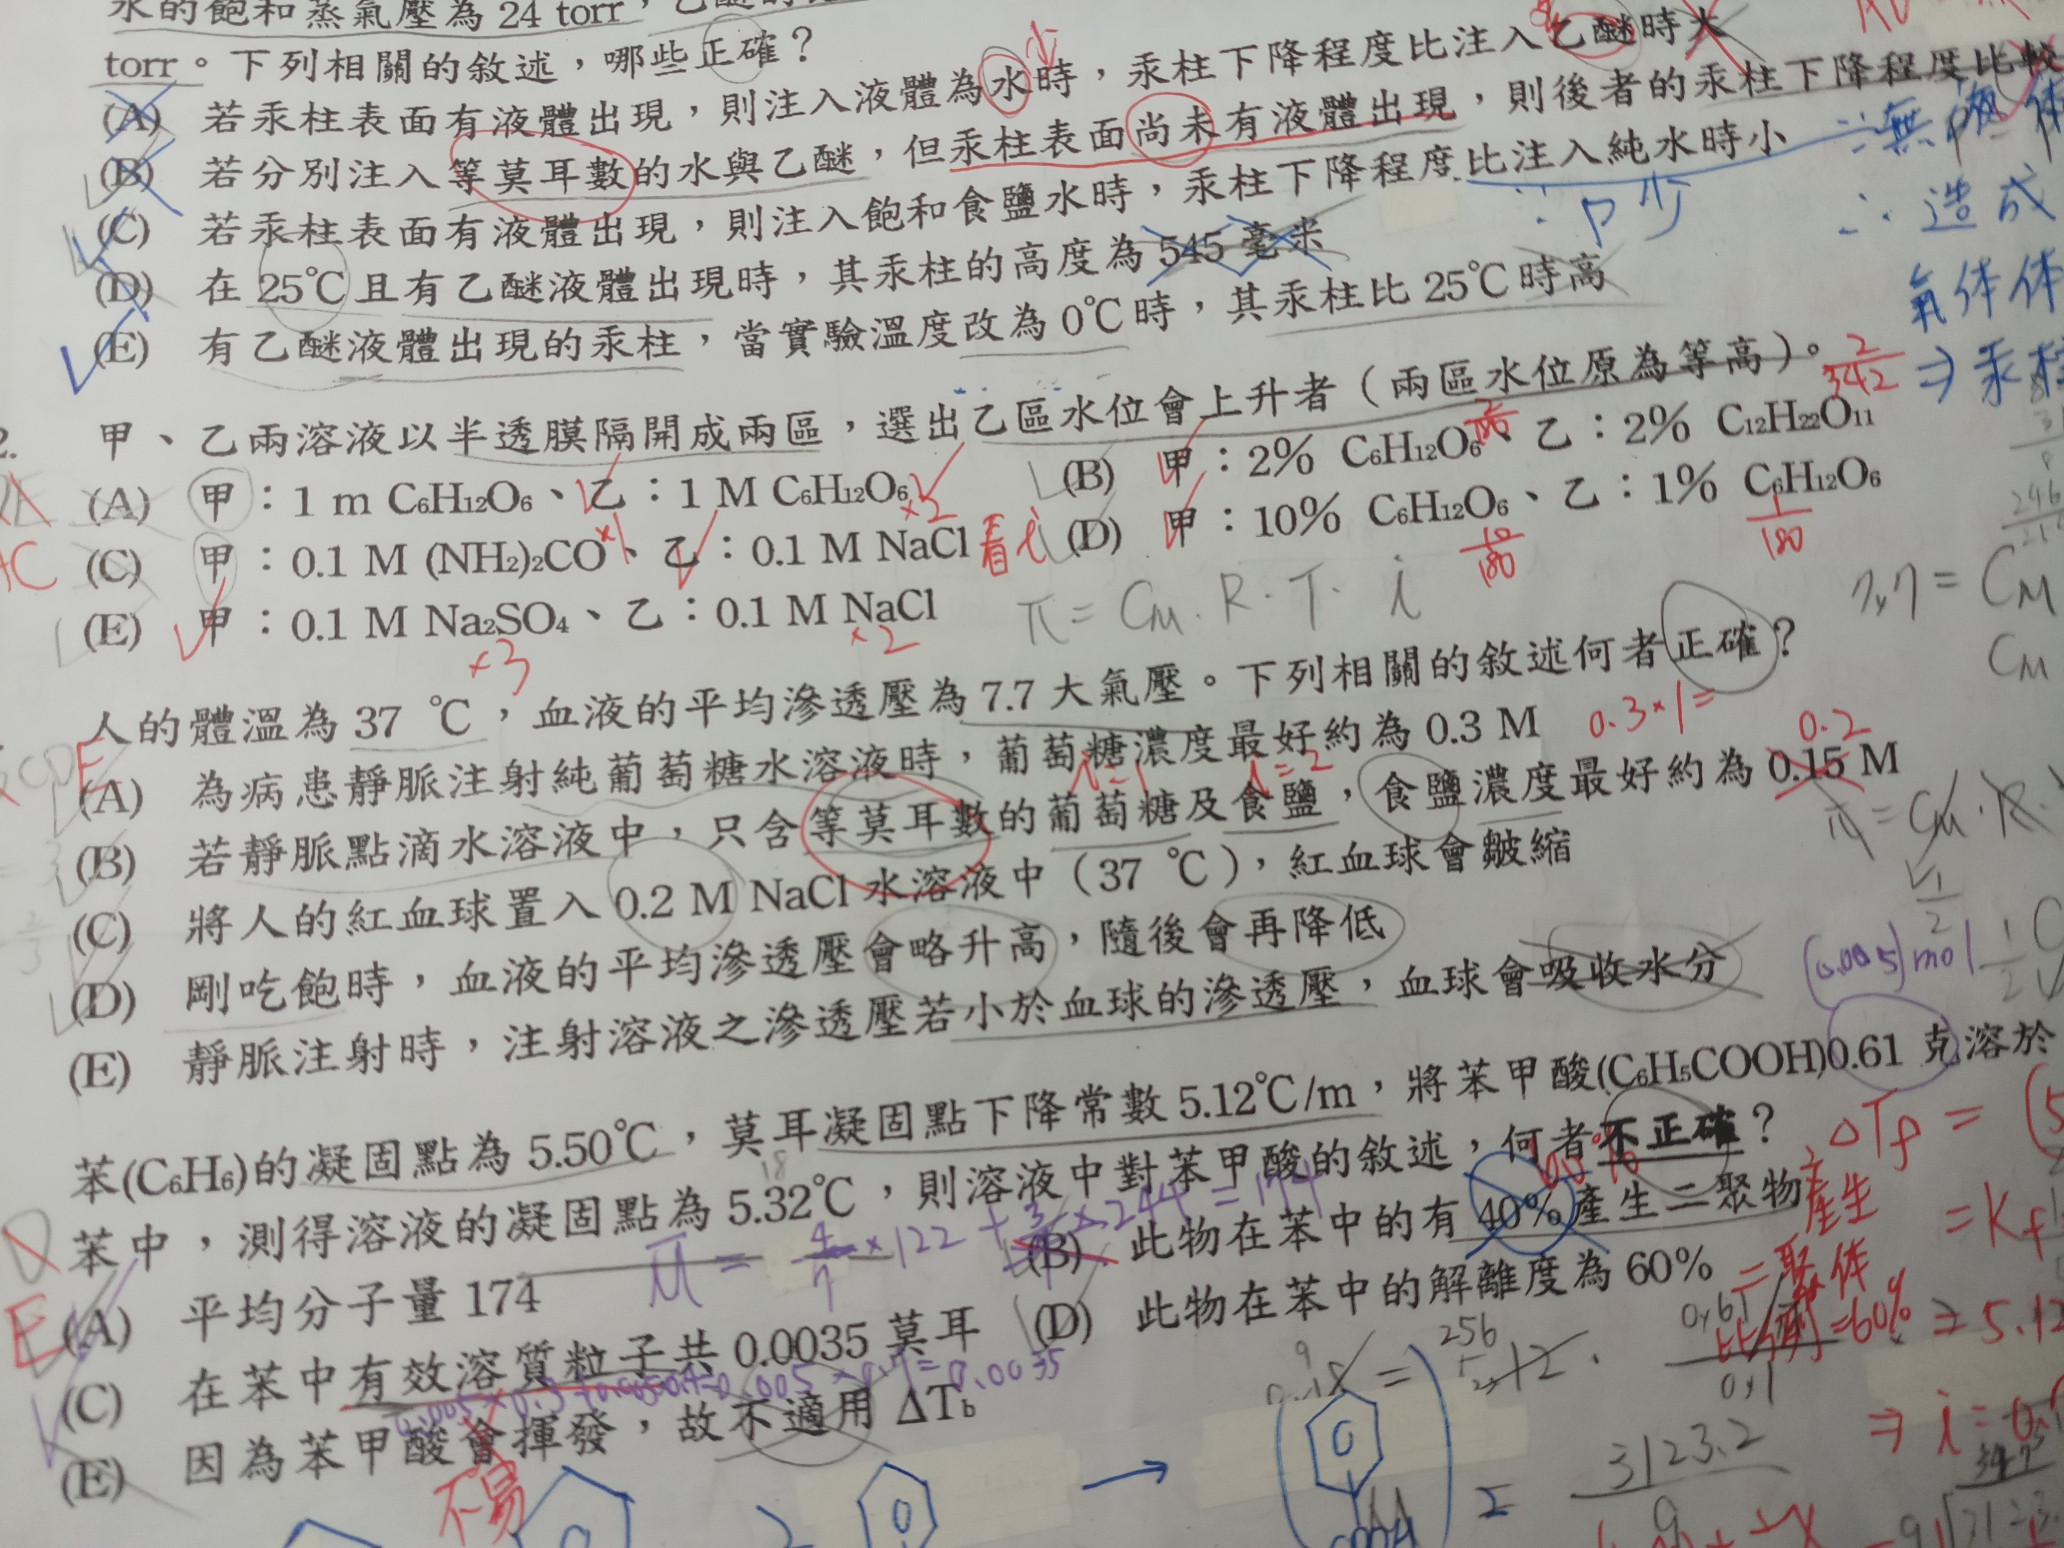 水的飽和蒸氣壓為 24 torr，乙醚的
torr。下列相關的敘述，哪些正確？
(A) 若汞柱表面有液體出現，則注入液體為水時，汞柱下降程度比注入乙醚時大
(B) 若分別注入等莫耳數的水與乙醚，但汞柱表面尚未有液體出現，則後者的汞柱下降程度比較
(C) 若汞柱表面有液體出現，則注入飽和食鹽水時，汞柱下降程度比注入純水時小
∵ P 少
(D) 在 25℃ 且有乙醚液體出現時，其汞柱的高度為 545 毫米
(E) 有乙醚液體出現的汞柱，當實驗溫度改為 0℃ 時，其汞柱比 25℃ 時高
∴ 造成
氣体体
⇒ 汞柱
2. 甲、乙兩溶液以半透膜隔開成兩區，選出乙區水位會上升者（兩區水位原為等高）。
2/342
(A) 甲：1 m C₆H₁₂O₆、乙：1 M C₆H₁₂O₆
(B) 甲：2% C₆H₁₂O₆、乙：2% C₁₂H₂₂O₁₁
(C) 甲：0.1 M (NH₂)₂CO、乙：0.1 M NaCl
×1 ×2 看i
(D) 甲：10% C₆H₁₂O₆、乙：1% C₆H₁₂O₆
10/180 1/180
(E) 甲：0.1 M Na₂SO₄、乙：0.1 M NaCl
×3 ×2
π = CM · R · T · i
人的體溫為 37 ℃，血液的平均滲透壓為 7.7 大氣壓。下列相關的敘述何者正確？
0.3×1=
(A) 為病患靜脈注射純葡萄糖水溶液時，葡萄糖濃度最好約為 0.3 M
i=1 i=2 0.2
(B) 若靜脈點滴水溶液中，只含等莫耳數的葡萄糖及食鹽，食鹽濃度最好約為 0.15 M
(C) 將人的紅血球置入 0.2 M NaCl 水溶液中（37 ℃），紅血球會皺縮
(D) 剛吃飽時，血液的平均滲透壓會略升高，隨後會再降低
(E) 靜脈注射時，注射溶液之滲透壓若小於血球的滲透壓，血球會吸收水分
(0.005) mol
苯(C₆H₆)的凝固點為 5.50℃，莫耳凝固點下降常數 5.12℃/m，將苯甲酸(C₆H₅COOH)0.61 克溶於
苯中，測得溶液的凝固點為 5.32℃，則溶液中對苯甲酸的敘述，何者不正確？
ΔTf =
(A) 平均分子量 174
M̄ = 4/7×122 + 3/7×244 = 174
(B) 此物在苯中的有 40% 產生二聚物
產生二聚体比例=60%
(C) 在苯中有效溶質粒子共 0.0035 莫耳
(D) 此物在苯中的解離度為 60%
(E) 因為苯甲酸會揮發，故不適用 ΔTb
不易
3123.2
9